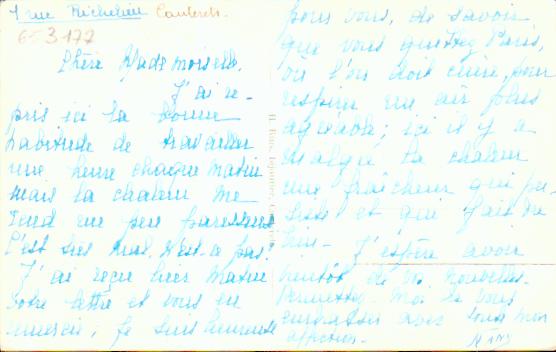 1 rue Richelieu Cauterets.
653177
Chère Mademoiselle.
J'ai re-
pris ici la bonne
habitude de travailler
une heure chaque matin
mais la chaleur me
rend un peu paresseuse
C'est très mal. N'est-ce pas!
J'ai reçu hier matin
votre lettre et vous en
remercie, je suis heureuse
pour vous, de savoir
que vous quittez Paris,
où l'on doit cuire, pour
respirer un air plus
agréable; ici il y a
malgré la chaleur
une fraîcheur qui per-
siste et qui fait du
bien. J'espère avoir
bientôt de vos nouvelles.
Permettez-moi de vous
embrasser avec tous mes
affection.